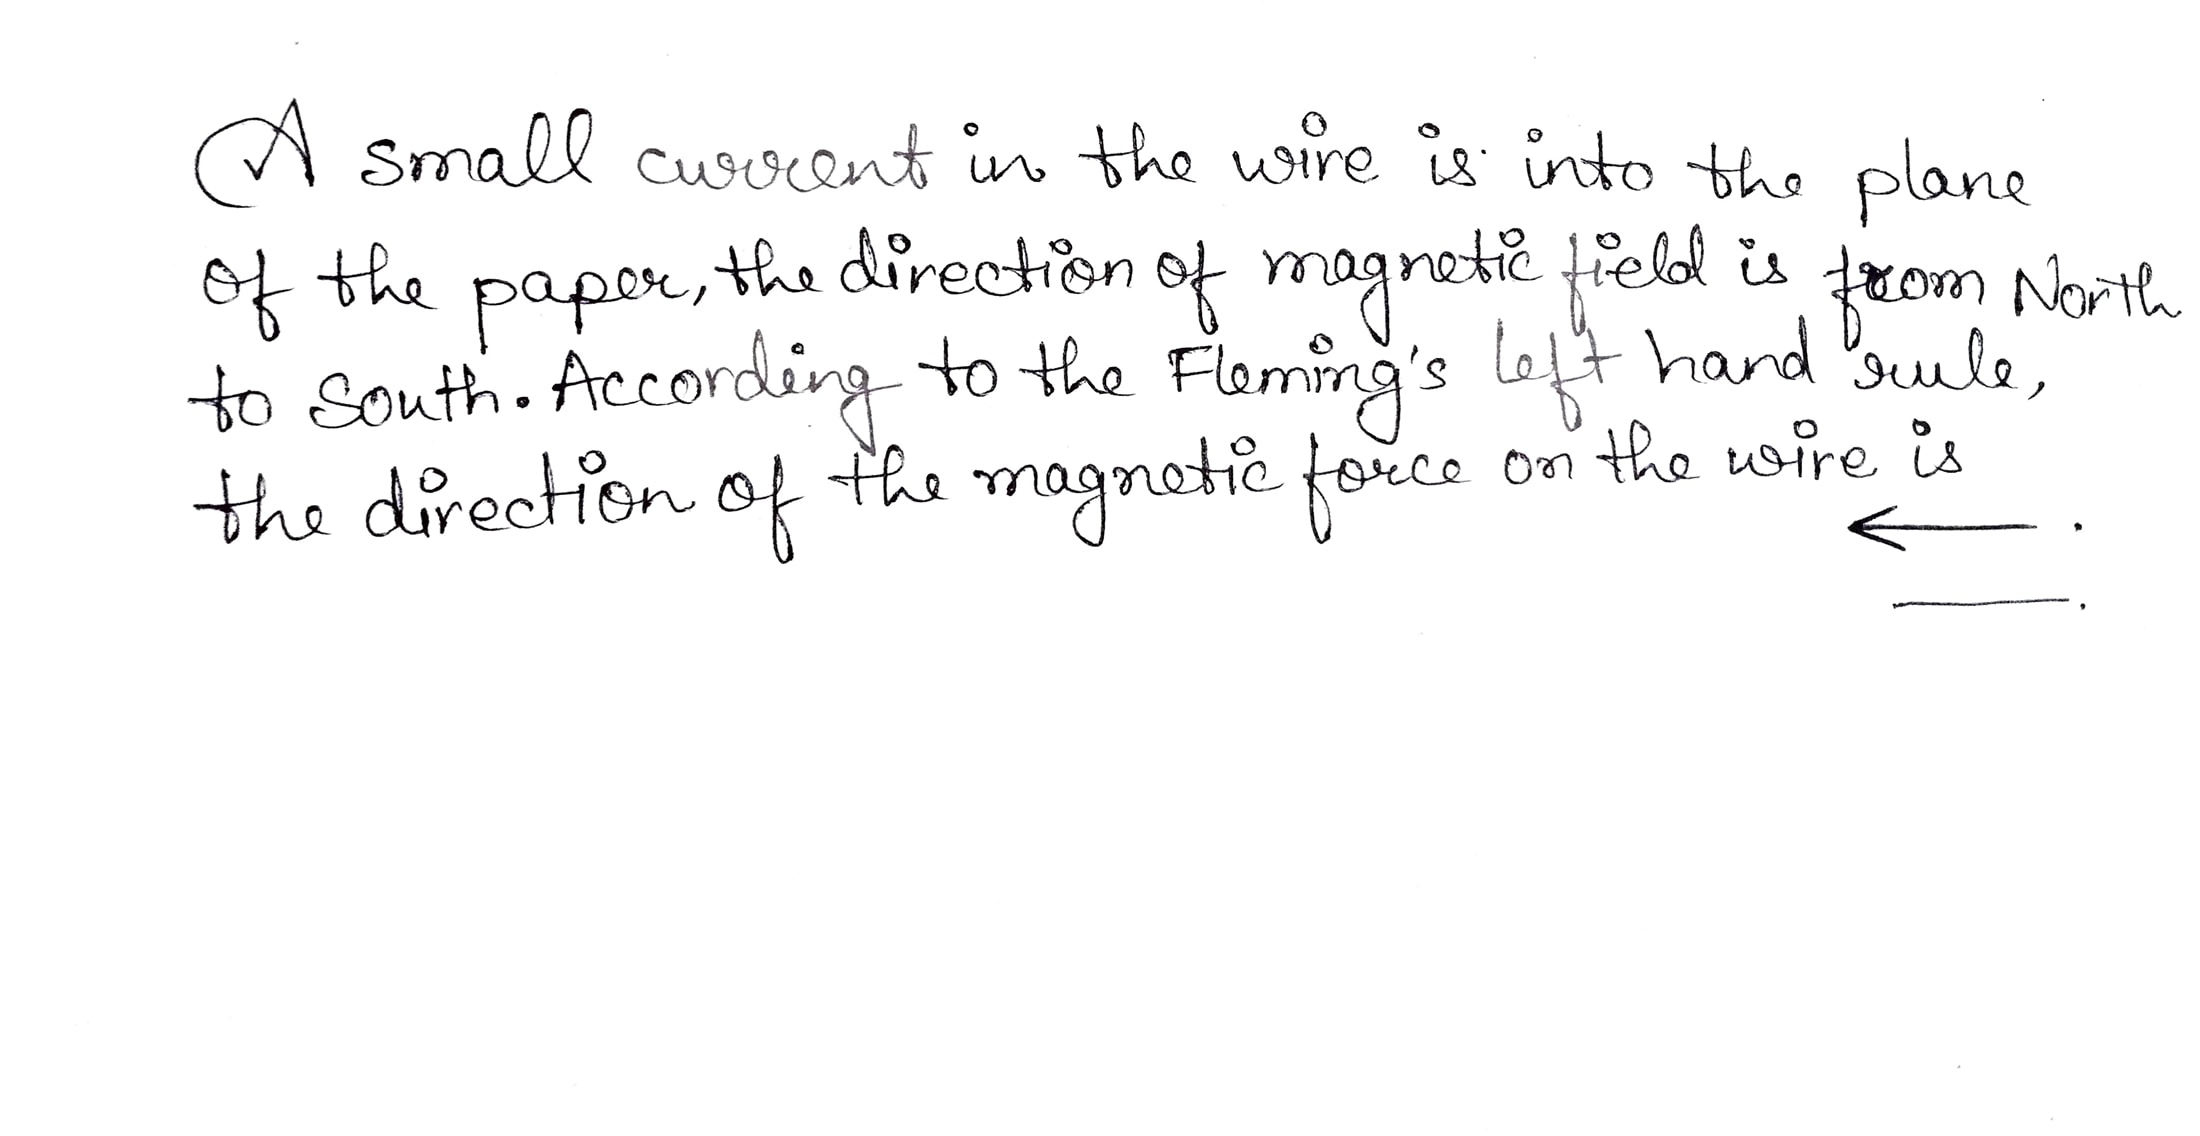 A small current in the wire is into the plane
of the paper, the direction of magnetic field is from North
to South. According to the Fleming's left hand rule,
the direction of the magnetic force on the wire is
← .
____.